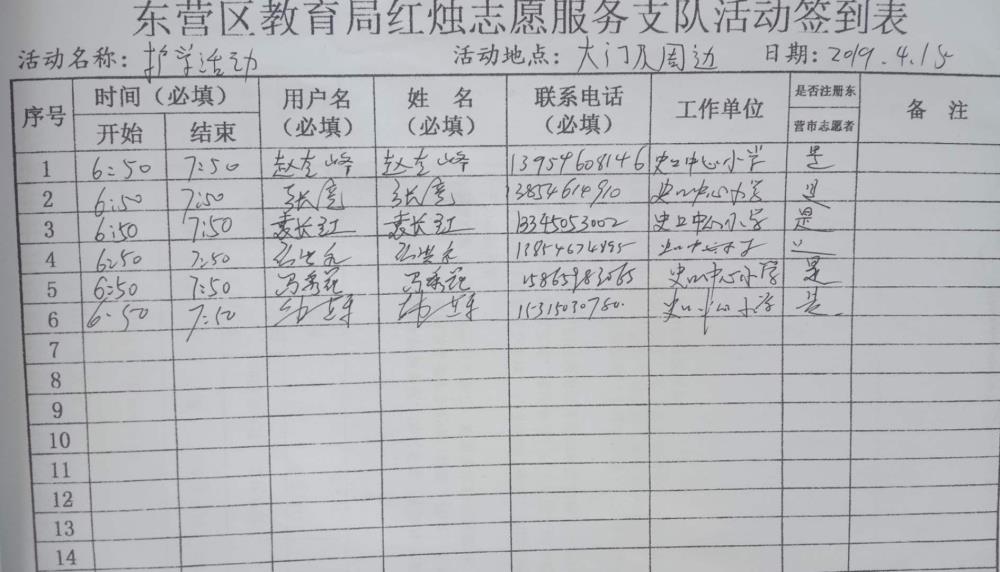 东营区教育局红烛志愿服务支队活动签到表
活动名称：护学活动 活动地点：大门及周边 日期：2019.4.15
序号 时间（必填） 用户名（必填） 姓名（必填） 联系电话（必填） 工作单位 是否注册东营市志愿者 备注
开始 结束
1 6:50 7:50 赵奎峰 赵奎峰 13954608146 史口中心小学 是
2 6:50 7:50 张亮 张亮 13854614910 史口中心小学 是
3 6:50 7:50 袁长红 袁长红 13345053002 史口中心小学 是
4 6:50 7:50 史口中心小学
5 6:50 7:50 冯秀苑 冯秀苑 史口中心小学 是
6 6:50 7:50 史口中心小学 是
7
8
9
10
11
12
13
14